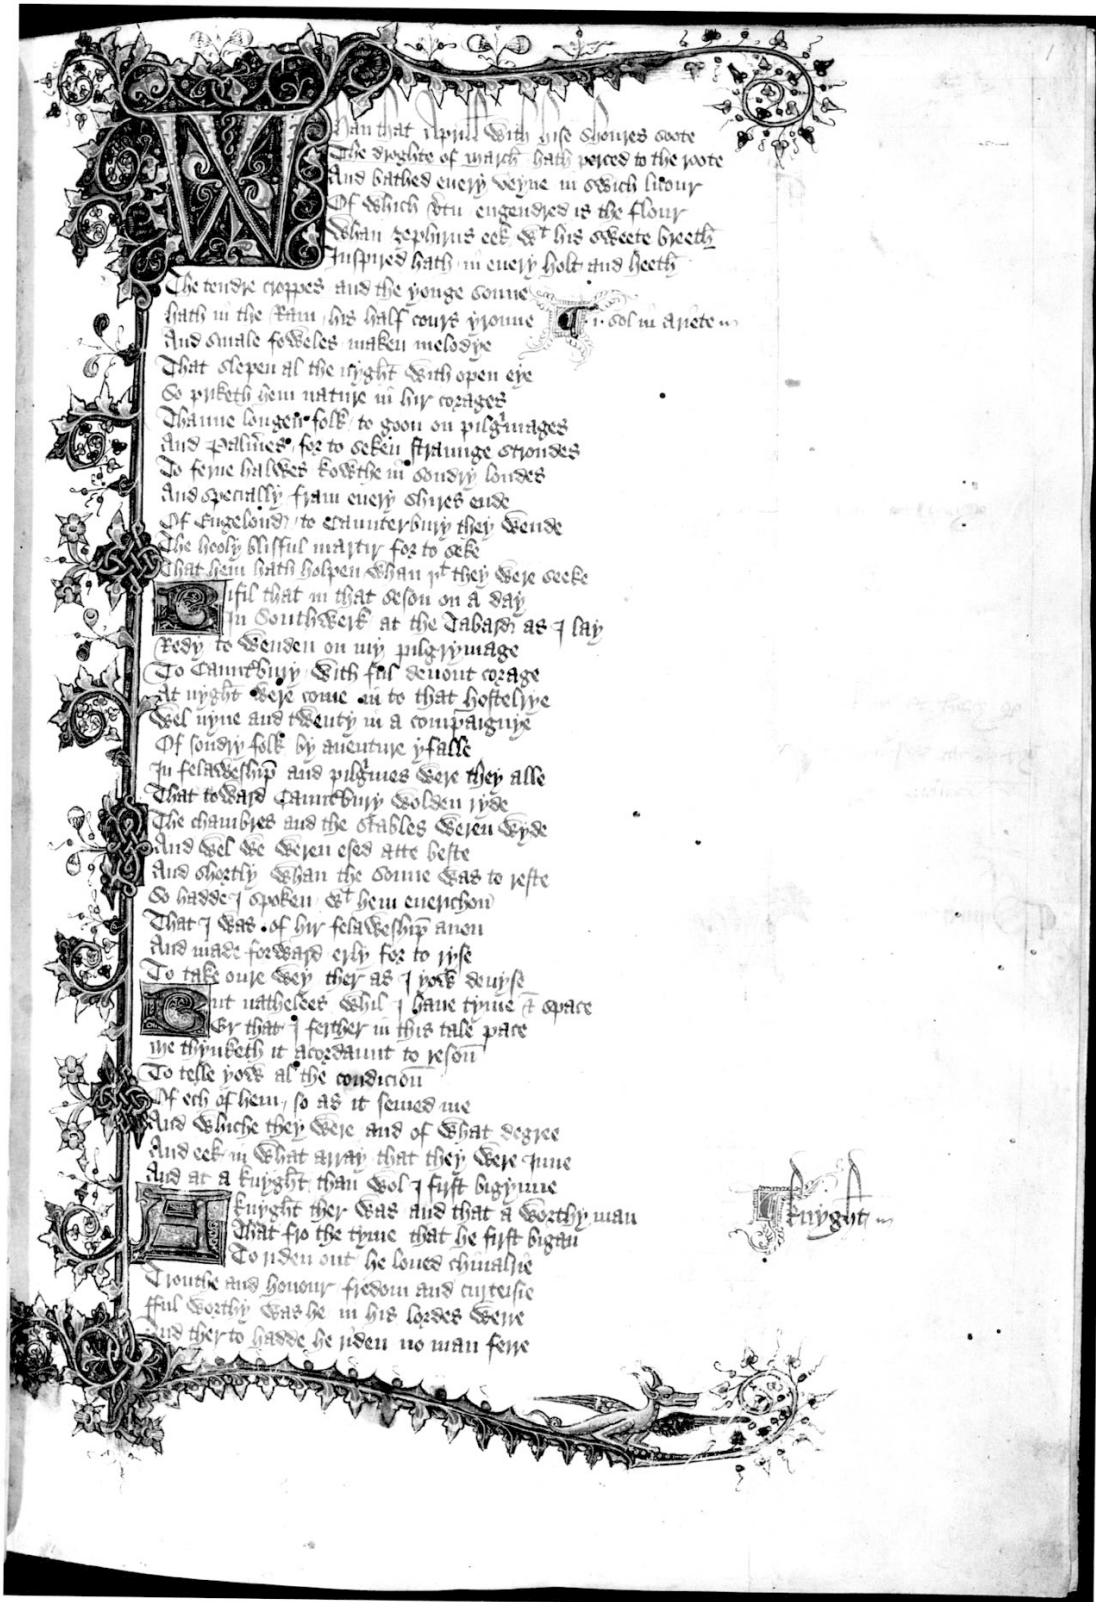 1
Whan that Aprill with hise shoures soote
The droghte of march hath perced to the roote
And bathed euery veyne in swich licour
Of which vertu engendred is the flour
Whan zephirus eek wt his sweete breeth
Inspired hath in euery holt and heeth
The tendre croppes and the yonge sonne
hath in the Ram his half cours yronne
i. sol in ariete
And smale foweles maken melodye
That slepen al the nyght with open eye
So priketh hem nature in hir corages
Thanne longen folk to goon on pilgrimages
And Palmeres for to seken straunge strondes
To ferne halwes kowthe in sondry londes
And specially fram euery shires ende
Of Engelond to Caunterbury they wende
The hooly blisful martir for to seke
That hem hath holpen whan þt they were seeke
Bifil that in that seson on a day
In Southwerk at the Tabard as I lay
Redy to wenden on my pilgrymage
To Caunterbury with ful deuout corage
At nyght were come in to that hostelrye
Wel nyne and twenty in a compaignye
Of sondry folk by auenture yfalle
In felaweshipe and pilgrimes were they alle
That toward Caunterbury wolden ryde
The chambres and the stables weren wyde
And wel we weren esed atte beste
And shortly whan the sonne was to reste
So hadde I spoken wt hem euerichon
That I was of hir felaweshipe anon
And made forward erly for to ryse
To take oure wey ther as I yow deuyse
But nathelees whil I haue tyme & space
Er that I ferther in this tale pace
Me thynketh it acordaunt to reson
To telle yow al the condicion
Of ech of hem so as it semed me
And whiche they were and of what degree
And eek in what array that they were Inne
And at a knyght than wol I first bigynne
A knyght ther was and that a worthy man
knyght
That fro the tyme that he first bigan
To riden out he loued chiualrie
Trouthe and honour fredom and curteisie
fful worthy was he in his lordes werre
And ther to hadde he riden no man ferre